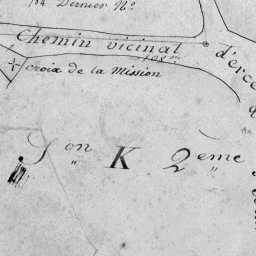 Dernier N°
Chemin vicinal
d'erce
croix de la Mission
Son K 2eme